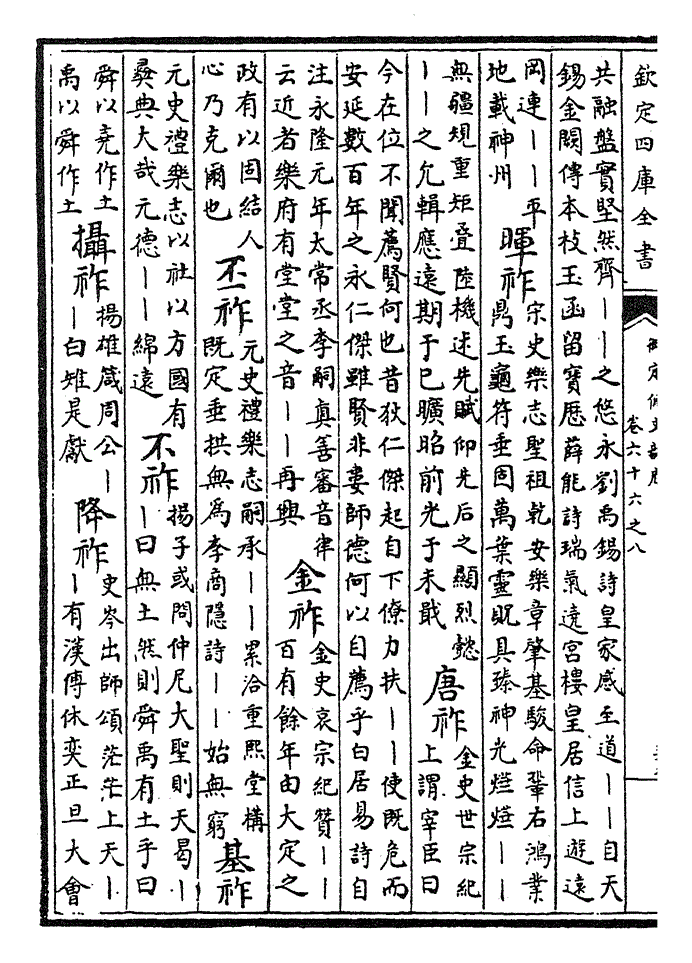 欽定四庫全書
御定佩文韻府
卷六十六之八
共融盤實堅然齊丨丨之悠永劉禹錫詩皇家感至道丨丨自天
錫金闕傳本枝玉函留寶歴薛能詩瑞氣遶宮樓皇居信上遊遠
岡連丨丨平
地載神州
暉祚
宋史樂志聖祖乾安樂章肇基駿命鞏右鴻業
鼎玉龜符垂固萬葉靈貺具臻神光燁燁丨丨
無疆規重矩叠陸機述先賦仰先后之顯烈懿
丨丨之允輯應遠期于已曠昭前光于未戢
唐祚
金史世宗紀
上謂宰臣曰
今在位不聞薦賢何也昔狄仁傑起自下僚力扶丨丨使既危而
安延數百年之永仁傑雖賢非婁師德何以自薦乎白居易詩自
注永隆元年太常丞李嗣真善審音律
云近者樂府有堂堂之音丨丨再興
金祚
金史哀宗紀贊丨丨
百有餘年由大定之
政有以固結人
心乃克爾也
丕祚
元史禮樂志嗣承丨丨累洽重熙堂構
既定垂拱無為李商隱詩丨丨始無窮
基祚
元史禮樂志以社以方國有
彝典大哉元德丨丨綿遠
不祚
揚子或問仲尼大聖則天曷丨
丨曰無土然則舜禹有土乎曰
舜以堯作土
禹以舜作土
攝祚
揚雄箴周公丨
丨白雉是獻
降祚
史岑出師頌茫茫上天丨
丨有漢傅休奕正旦大會